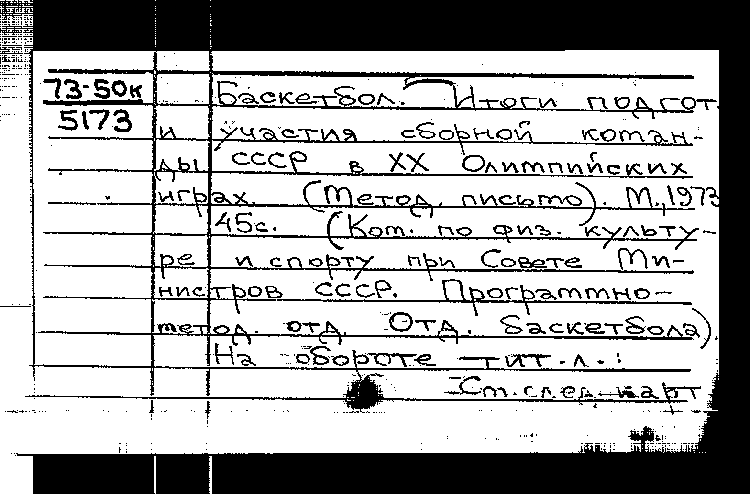 73-50к
5173
Баскетбол. Итоги подгот.
и участия сборной коман-
ды СССР в XX Олимпийских
играх. (Метод. письмо). М., 1973
45с. (Ком. по физ. культу-
ре и спорту при Совете Ми-
нистров СССР. Программно-
метод. отд. Отд. баскетбола).
На обороте тит. л.:
См. след. карт